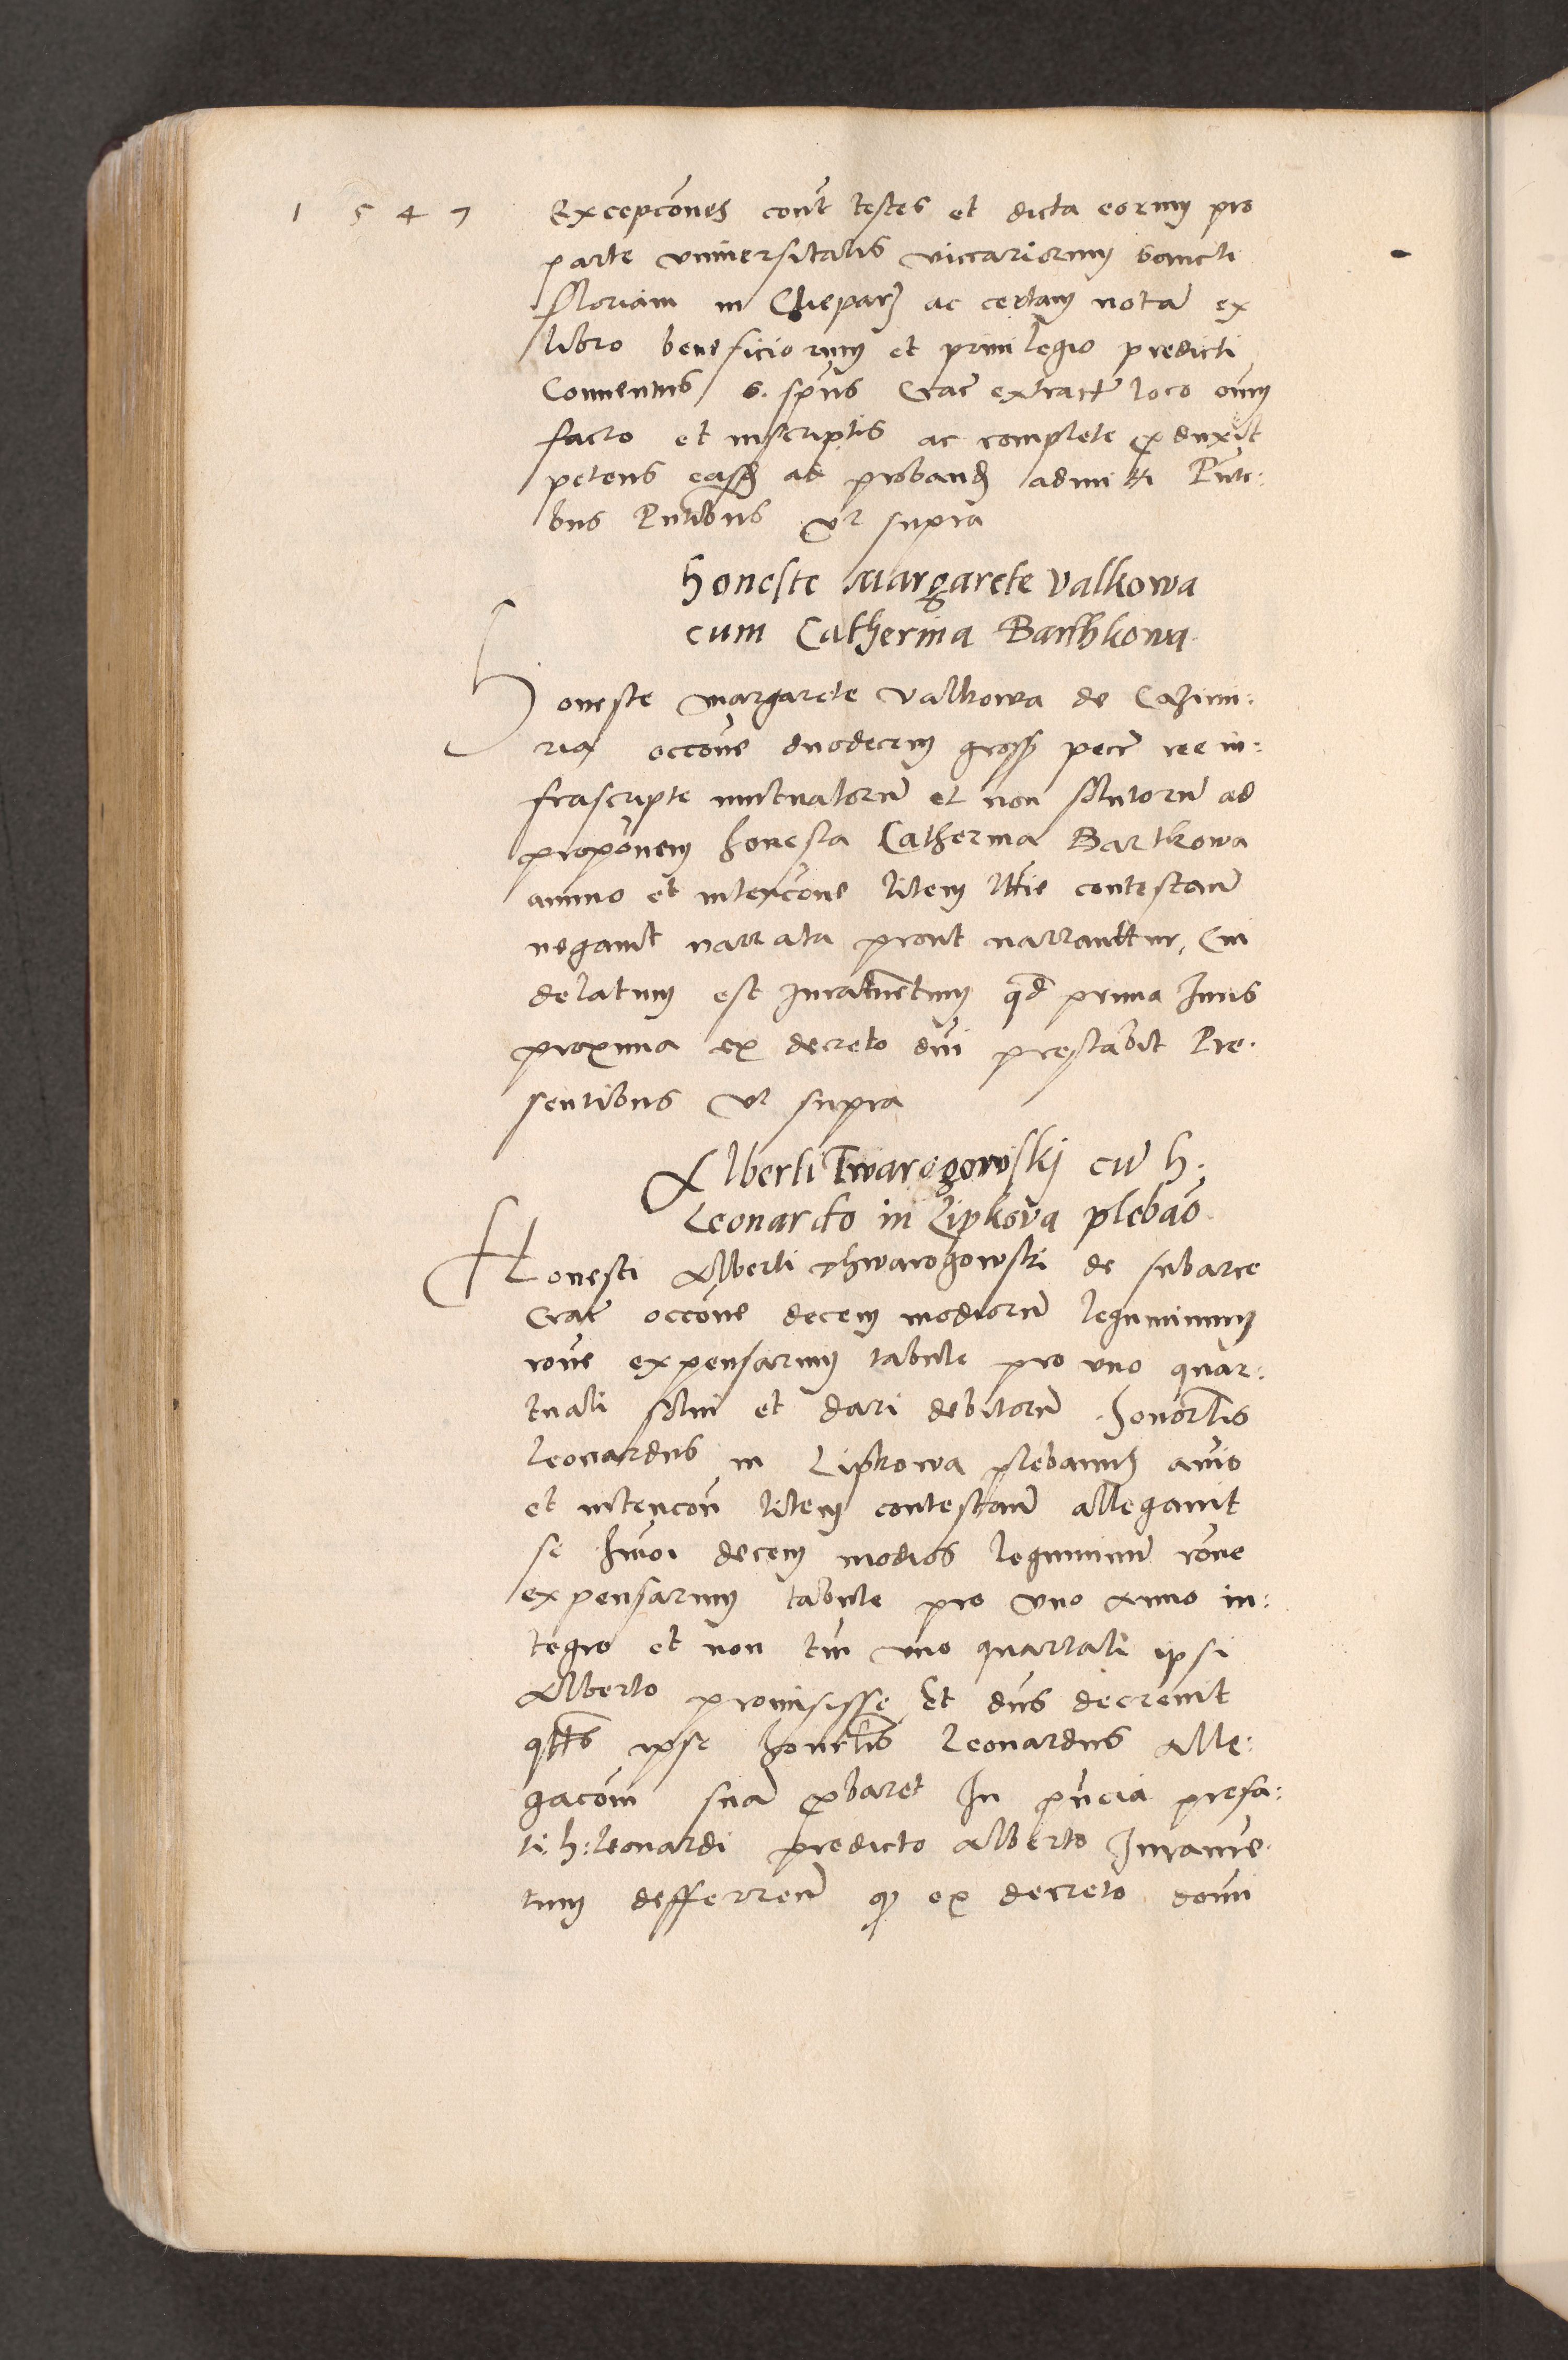 1 5 4 7
Excepcones cont testes et dicta eorum pro
parte vniuersitatis viccariorum sancti
floriani in Cleparz ac certam nota ex
libro beneficiorum et priuilegio predicti
Conuentus S. spus Crac extract loco oium
facto et inscriptis ac complete produxit
petens easd ad proband admitti Pnte:
bus Pntibus vt supra
Honeste Margarete Valkowa
cum Catherina Barthkowa
Honeste Margarete Valkowa de Cazimi:
ria occone duodecem gross pecu ree in:
frascripte mutuatoru et non solutoru ad
proponem honesta Catherina Bartkowa
animo et intencone litem lttie contestan
negauit narrata prout narranttur, Cui
delatum est Juramentum qd prima Juris
proxima ex decreto dni prestabit Pre:
sentibus vt supra
Alberti Twarogowskj cu h:
Leonardo in Lipkova plebao
Honesti Alberti Thwarogowski de subarce
Crac occone decem modioru leguminum
rone expensarum tabule pro vno quar:
tuali solui et dari debitoru. honorlis
Leonardus in Lipkowa plebanus aio
et intencon litem contestan allegauit
se decem modios leguminu rone
expensarum tabule pro vno anno in:
tegro et non tm vno quartali ipsi
Alberto promisisse Et dns decreuit
qtts ipse honorlis Leonardus alle:
gacom sua probaret In pncia prefa:
ti: h: Leonardi predicto Alberto Jurame:
tum defferren qd ex decreto domi